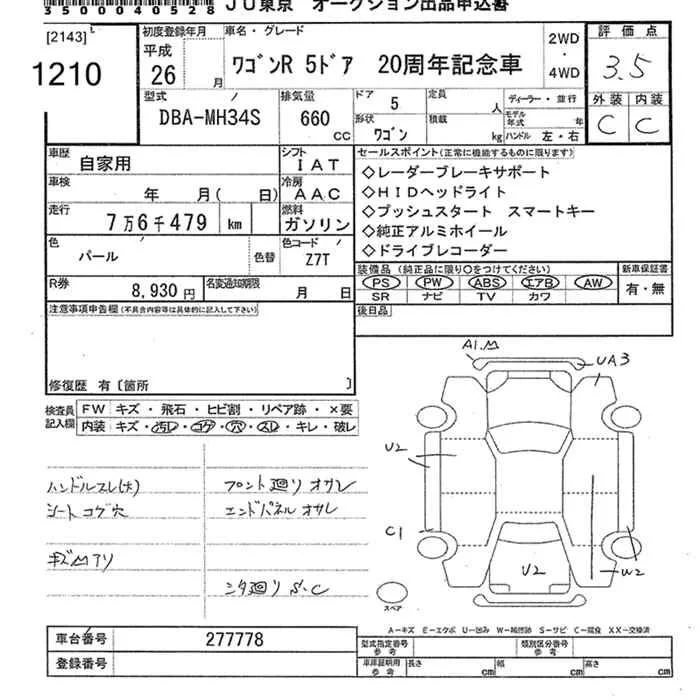 350040528 JU東京 オークション出品申込書
[2143]
1210
初度登録年月
平成
26 月
車名・グレード
ワゴンR 5ドア 20周年記念車
2WD
・
4WD
評価点
3.5
外装 内装
C C
型式
DBA-MH34S
排気量
660
CC
ドア
5
形状
ワゴン
定員
人
積載
kg
ディーラー・並行
モデル年式 年
ハンドル 左・右
車歴
自家用
シフト
IAT
車検
年 月( 日)
冷房
AAC
走行
7万6千479 km
燃料
ガソリン
色
パール
色替
色コード
Z7T
R券
8,930円
名変通知期限
月 日
セールスポイント(正常に機能するものに限ります)
◇レーダーブレーキサポート
◇HIDヘッドライト
◇プッシュスタート スマートキー
◇純正アルミホイール
◇ドライブレコーダー
装備品(純正品に限り○をつけてください)
PS PW ABS エアB AW
SR ナビ TV カワ
新車保証書
有・無
後日品
注意事項申告欄(不具合内容等は具体的に記入して下さい)
修復歴 有〔箇所 〕
検査員
記入欄
FW キズ・飛石・ヒビ割・リペア跡・×要
内装 キズ・汚レ・コゲ・穴・スレ・キレ・破レ
ハンドルスレ(大)
シートコゲ穴
キズ凹アリ
フロント廻りオサレ
エンドパネルオサレ
シタ廻りS.C
A1.凹
UA3
U2
C1
U2
W2
スペア
A-キズ E-エクボ U-凹み W-補修跡 S-サビ C-腐食 XX-交換済
車台番号 277778
登録番号
型式指定番号
参考
類別区分番号
参考
車庫証明用
参考
長さ cm
幅 cm
高さ cm